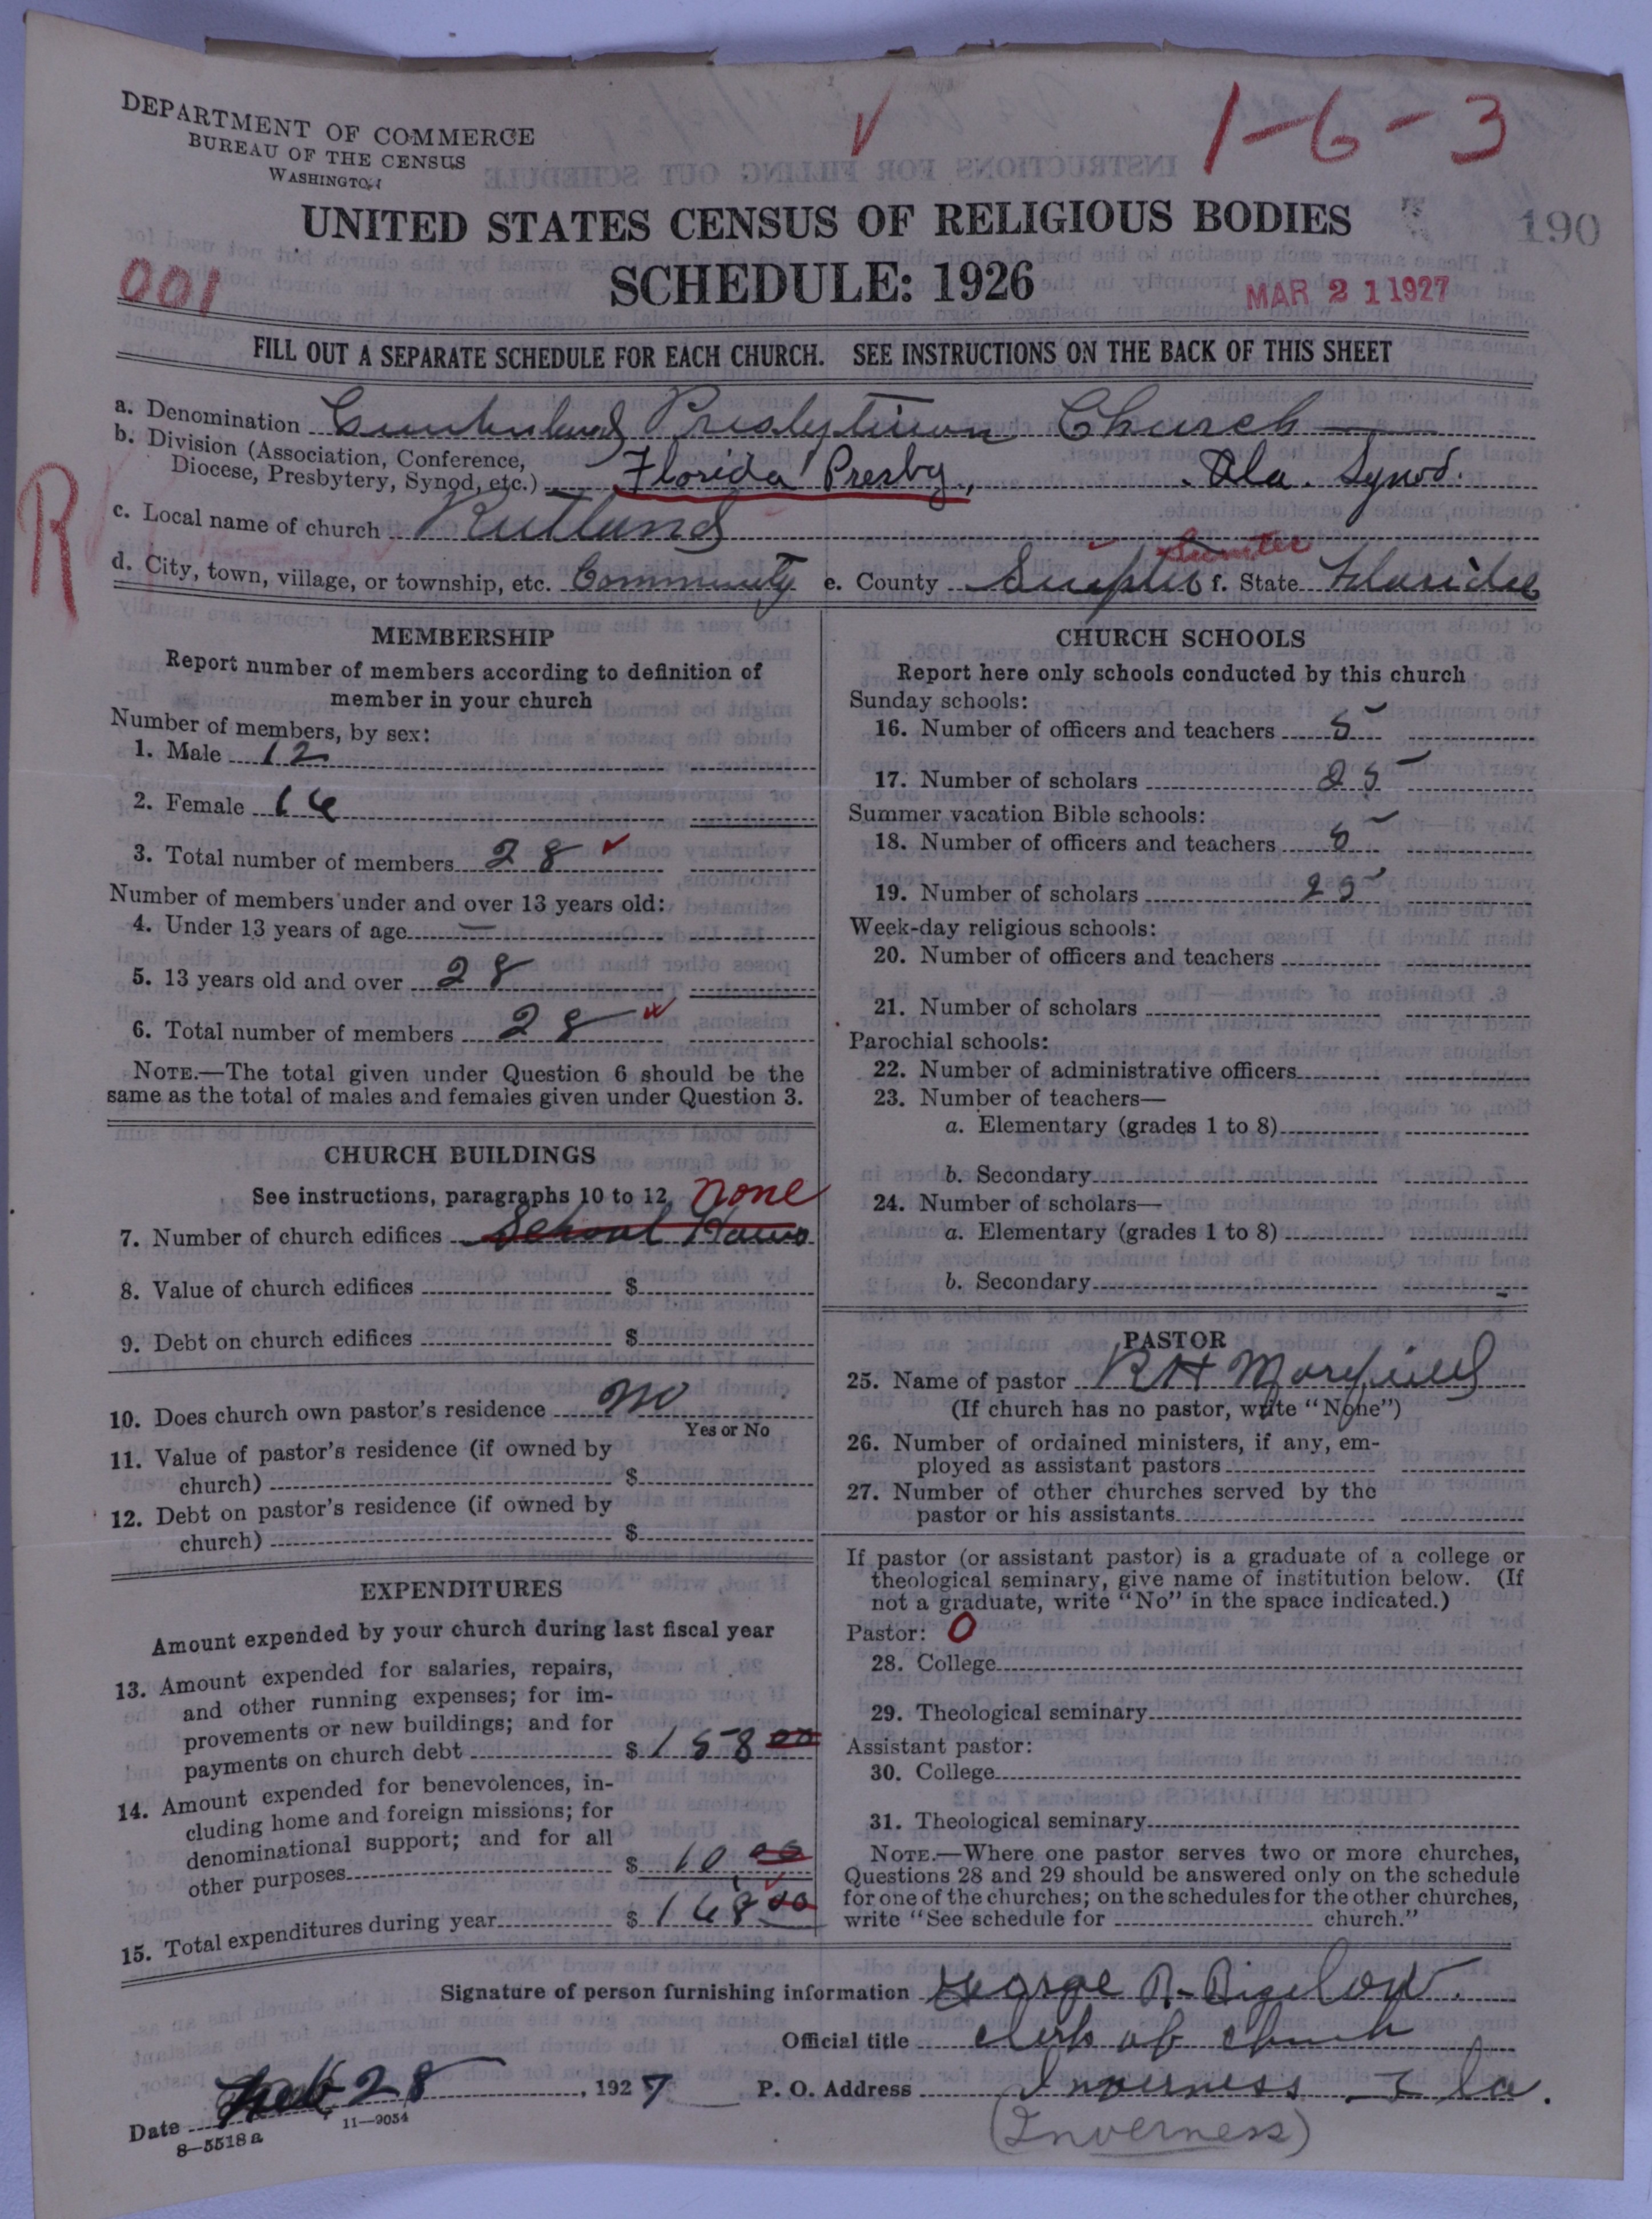 DEPARTMENT OF COMMERCE
BUREAU OF THE CENSUS
WASHINGTON
1-6-3
UNITED STATES CENSUS OF RELIGIOUS BODIES
190
SCHEDULE: 1926
001
MAR 21 1927
FILL OUT A SEPARATE SCHEDULE FOR EACH CHURCH. SEE INSTRUCTIONS ON THE BACK OF THIS SHEET
a. Denomination Cumberland Presbyterian Church
b. Division (Association, Conference,
Diocese, Presbytery, Synod, etc.) Florida Presby, Ala. Synod.
R
c. Local name of church Rutland
Sumter
d. City, town, village, or township, etc. Community e. County Sumpter f. State Florida
MEMBERSHIP
Report number of members according to definition of
member in your church
Number of members, by sex:
1. Male 12
2. Female 16
3. Total number of members 28
Number of members under and over 13 years old:
4. Under 13 years of age —
5. 13 years old and over 28
6. Total number of members 28
NOTE.—The total given under Question 6 should be the
same as the total of males and females given under Question 3.
CHURCH BUILDINGS
See instructions, paragraphs 10 to 12 none
7. Number of church edifices School House
8. Value of church edifices $
9. Debt on church edifices $
10. Does church own pastor's residence no
Yes or No
11. Value of pastor's residence (if owned by
church) $
12. Debt on pastor's residence (if owned by
church) $
EXPENDITURES
Amount expended by your church during last fiscal year
13. Amount expended for salaries, repairs,
and other running expenses; for im-
provements or new buildings; and for
payments on church debt $158 00
14. Amount expended for benevolences, in-
cluding home and foreign missions; for
denominational support; and for all
other purposes $ 10 00
15. Total expenditures during year $168 00
CHURCH SCHOOLS
Report here only schools conducted by this church
Sunday schools:
16. Number of officers and teachers 5
17. Number of scholars 25
Summer vacation Bible schools:
18. Number of officers and teachers 5
19. Number of scholars 25
Week-day religious schools:
20. Number of officers and teachers
21. Number of scholars
Parochial schools:
22. Number of administrative officers
23. Number of teachers—
a. Elementary (grades 1 to 8)
b. Secondary
24. Number of scholars—
a. Elementary (grades 1 to 8)
b. Secondary
PASTOR
25. Name of pastor R H
(If church has no pastor, write "None")
26. Number of ordained ministers, if any, em-
ployed as assistant pastors
27. Number of other churches served by the
pastor or his assistants
If pastor (or assistant pastor) is a graduate of a college or
theological seminary, give name of institution below. (If
not a graduate, write "No" in the space indicated.)
Pastor: 0
28. College
29. Theological seminary
Assistant pastor:
30. College
31. Theological seminary
NOTE.—Where one pastor serves two or more churches,
Questions 28 and 29 should be answered only on the schedule
for one of the churches; on the schedules for the other churches,
write "See schedule for church."
Signature of person furnishing information George R. Bigelow.
Official title clerk of church
Date Feb 28, 1927 P. O. Address Inverness Fla.
8-5518 a 11-9054
(Inverness)